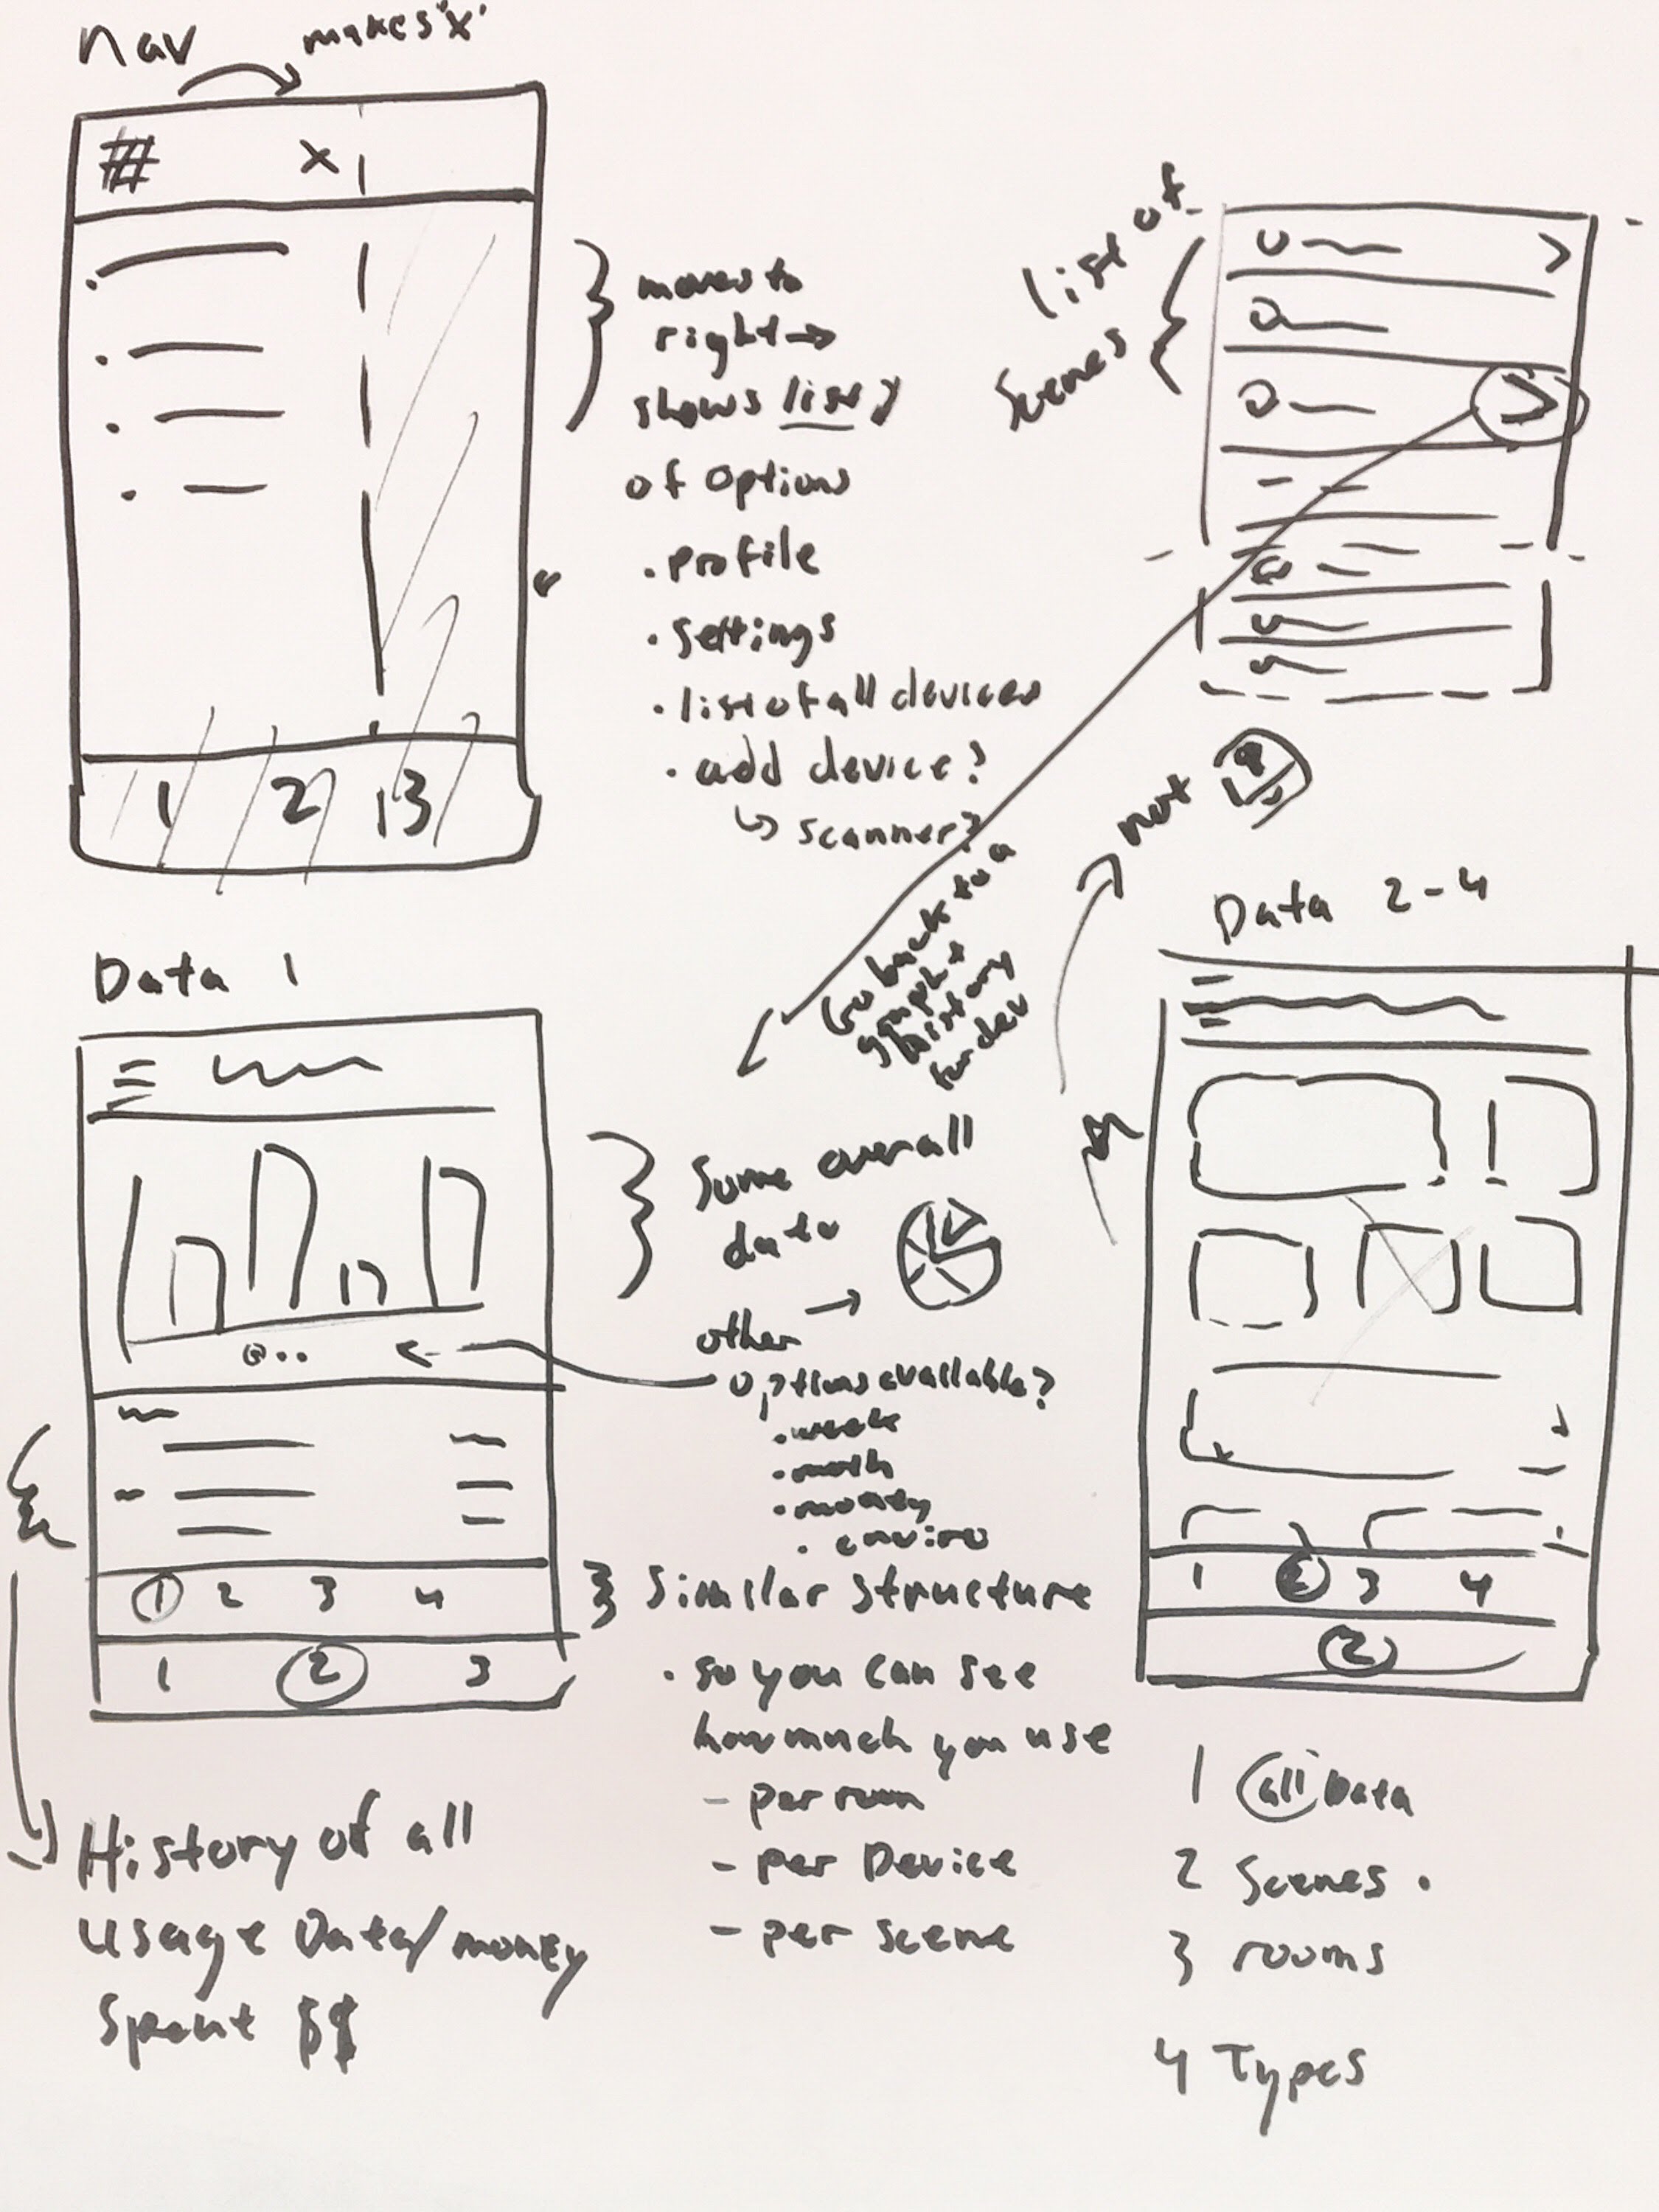 nav
makes 'x'
# x
moves to
right →
shows list
of options
. profile
. settings
. list of all devices
. add device?
↳ scanner?
1 2 3
list of
scenes
not
Go back to a
graph +
history
for dev
Data 1
Some overall
data
other →
options available?
. week
. month
. money
. enviro
1 2 3 4
1 2 3
} Similar structure
. so you can see
how much you use
- per room
- per Device
- per scene
History of all
usage Data/money
Spent $$
Data 2-4
1 2 3 4
2
1 all Data
2 Scenes .
3 rooms
4 Types